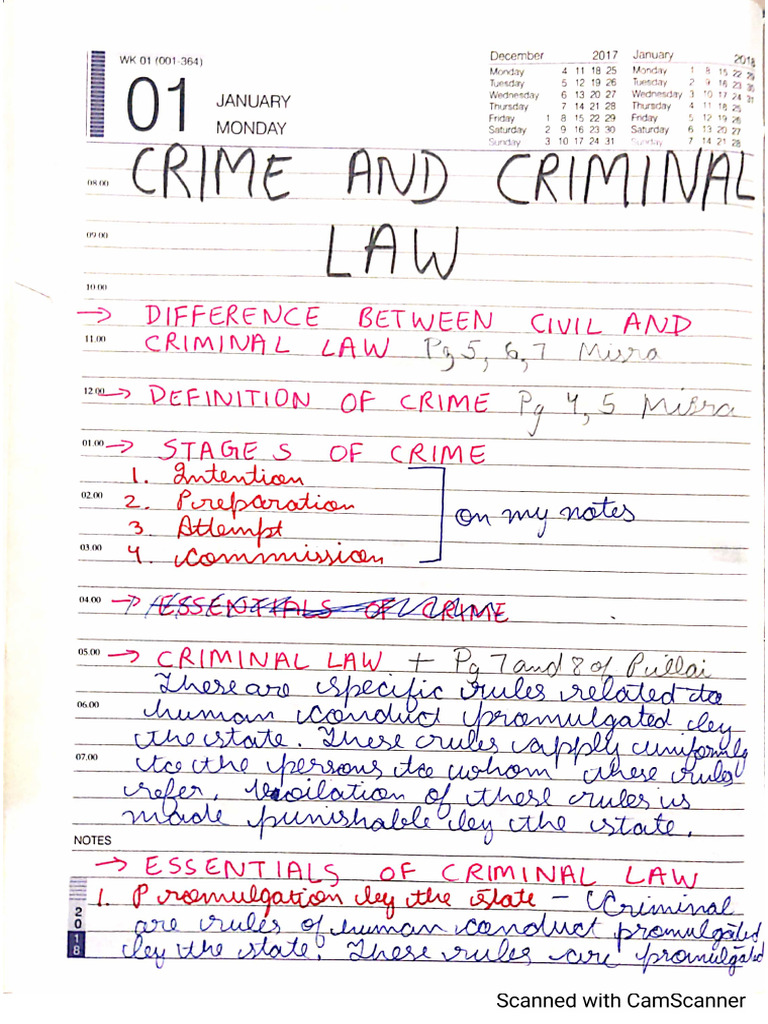 WK 01 (001-364)
01 JANUARY
MONDAY
December 2017 January 2018
Monday 4 11 18 25 Monday 1 8 15 22 29
Tuesday 5 12 19 26 Tuesday 2 9 16 23 30
Wednesday 6 13 20 27 Wednesday 3 10 17 24 31
Thursday 7 14 21 28 Thursday 4 11 18 25
Friday 1 8 15 22 29 Friday 5 12 19 26
Saturday 2 9 16 23 30 Saturday 6 13 20 27
Sunday 3 10 17 24 31 Sunday 7 14 21 28
08.00 CRIME AND CRIMINAL
09.00 LAW
10.00
→ DIFFERENCE BETWEEN CIVIL AND
11.00 CRIMINAL LAW Pg 5, 6, 7 Misra
12.00 → DEFINITION OF CRIME Pg 4, 5 Misra
01.00 → STAGES OF CRIME
1. Intention
02.00 2. Preparation on my notes
3. Attempt
03.00 4. Commission
04.00 → ESSENTIALS OF CRIME
05.00 → CRIMINAL LAW + Pg 7 and 8 of Pillai
These are specific rules related to
06.00 human conduct promulgated by
the state. These rules apply uniformly
07.00 to the persons to whom these rules
refer. Voilation of these rules is
made punishable by the state.
NOTES
→ ESSENTIALS OF CRIMINAL LAW
1. Promulgation by the state - Criminal
are rules of human conduct promulgated
by the state. These rules are promulgated
2018
Scanned with CamScanner